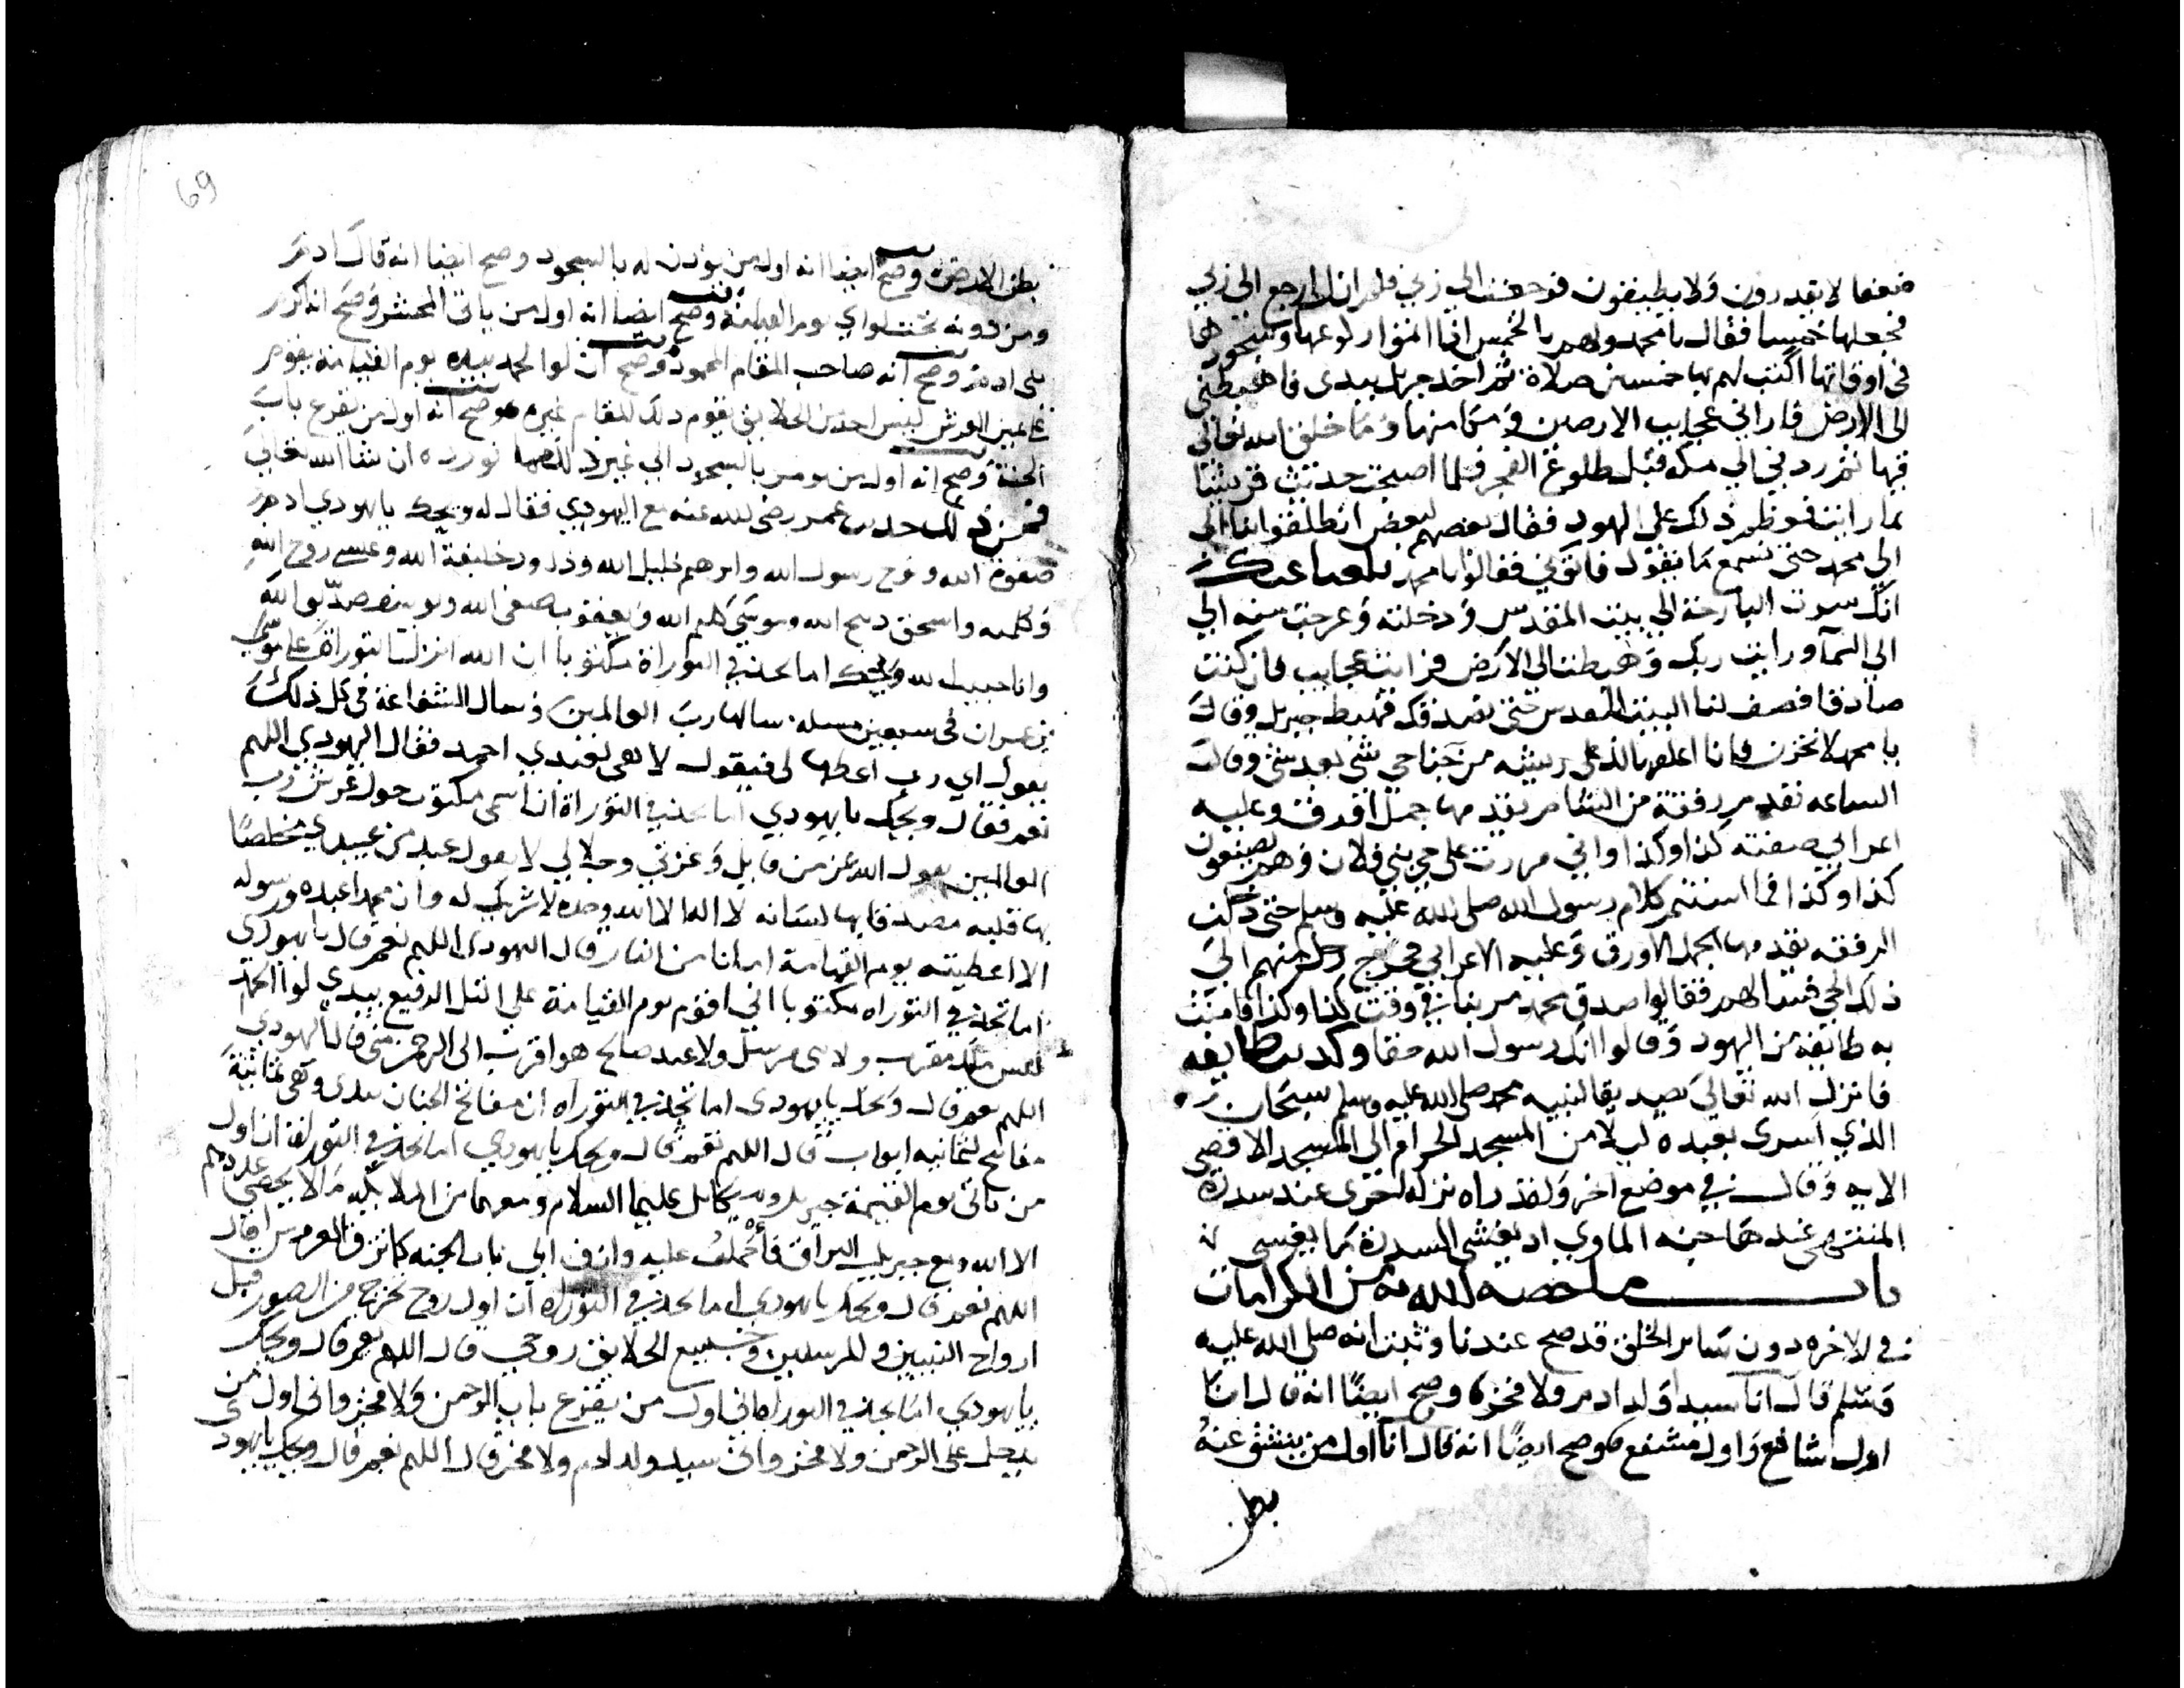 ضعفا لا يقدرون ولا يطيقون فرجعت الي ربي فلم ازل ارجع الي ربي
فجعلها خمسا فقال يا محمد ولهم بالخمس اذا اتموا ركوعها وسجودها
في اوقاتها اكتب لهم بها خمسين صلاة ثم اخذ جبريل بيدي فاهبطني
الى الارض فاراني عجايب الارضين وما منها وما خلق الله تعالى
فيها ثم ردني الي مكه قبل طلوع الفجر فلما اصبحت حدثت قريشا
بما رايت فعظم ذلك على اليهود فقال بعضهم لبعض انطلقوا بنا الى
الي محمد حتى نسمع ما يقول فاتوني فقالوا يا محمد بلغنا عنك
انك سرت البارحة الي بيت المقدس ودخلته وعرجت منه الي
الي السمآ ورايت ربك وهبطت الى الارض فرايت عجايب فان كنت
صادقا فصف لنا البيت المقدس حتى نصدقك فهبط جبريل وقال
يا محمد لا تحزن فانا اعلمها لك على ريشه من جناحي شي بعد شي وقال
الساعه تقدم رفقة من الشام يقدمها جمل اورق وعليه
اعرابي صفته كذا وكذا واني مررت على حي بني فلان وهم يصنعون
كذا وكذا فما استتم كلام رسول الله صلى الله عليه وسلم حتى دخلت
الرفقه يقدمها الجمل الاورق وعليه الاعرابي فخرج رجل منهم الى
ذلك الحي فسالهم فقالوا صدق محمد مر بنا في وقت كذا وكذا فامنت
به طايفة من اليهود وقالوا انك رسول الله حقا وكذبت طايفه
فانزل الله تعالي تصديقا لنبيه محمد صلى الله عليه وسلم سبحان
الذي اسرى بعبده ليلا من المسجد الحرام الى المسجد الاقصى
الايه وقال في موضع اخر ولقد راه نزلة اخرى عند سدرة
المنتهى عندها جنه الماوي اذ يغشى السدرة ما يغشى
باب ما خصه الله به من الكرامات
في الاخره دون ساير الخلق قد صح عندنا وثبت انه صلى الله عليه
وسلم قال انا سيد ولد ادم ولا فخر وصح ايضا انه قال انا
اول شافع واول مشفع وصح ايضا انه قال انا اول من ينشق عنه
بطن
69
بطن الارض وصح ايضا انه اول من يوذن له بالسجود وصح ايضا انه قال ادم
ومن دونه تحت لواي يوم القيامة وصح ايضا انه اول من ياتى المحشر وصح انه اكرم
بنى ادم وصح انه صاحب المقام المحمود وصح ان لوا الحمد بيده يوم القيامة يقوم
عن يمين العرش ليس احد من الخلايق يقوم ذلك المقام غيره وصح انه اول من يقرع باب
الجنة وصح انه اول من يومر بالسجود الي غير ذلك مما نورده ان شا الله تعالي
فمن ذلك حديث عمر رضي الله عنه مع اليهودي فقال له ويحك يا يهودي ادم
صفوة الله ونوح رسول الله وابرهيم خليل الله وداود خليفة الله وعيسى روح الله
وكلمته واسحق ذبيح الله وموسى كليم الله ويعقوب صفى الله ويوسف صديق الله
وانا حبيب الله ويحك اما تجد في التوراة مكتوبا ان الله انزل التوراة على موسى
بن عمران في سبعين مسله سالها رب العالمين فسال الشفاعة في كل ذلك
يقول اي رب اعطها لي فيقول لا هى لعبدي احمد فقال اليهودي اللهم
نعم فقال ويحك يا يهودي اما تجد في التوراة ان اسمى مكتوب حول عرش رب
العالمين يقول الله عز من قايل وعزتي وجلالي لا يقول عبد من عبيدي مخلصا
بها قلبه مصدقا بها لسانه لا اله الا الله وحده لا شريك له وان محمدا عبده ورسوله
الا اعطيته يوم القيامة امانا من النار قال اليهودي اللهم نعم قال يا يهودى
اما تجد في التوراه مكتوبا اني اقوم يوم القيامة على التل الرفيع بيدي لوا الحمد
ليس ملك مقرب ولا نبى مرسل ولا عبد صالح هو اقرب الى الرحمن منى قال اليهودي
اللهم نعم قال ويحك يا يهودى اما تجد في التوراه ان مفاتح الجنان بيدى وهى ثمانية
مفاتيح لثمانيه ابواب قال اللهم نعم قال ويحك يا يهودي اما تجد في التوراة ان اول
من ياتى يوم القيمة جبريل وميكائل عليهما السلام ومعهما من الملايكه ما لا يحصى عددهم
الا الله ومع جبريل البراق فأحمل عليه وازف الى باب الجنه كما تزف العروس قال
اللهم نعم قال ويحك يا يهودي اما تجد في التوراه ان اول روح تخرج من الصور قبل
ارواح النبيين والمرسلين وجميع الخلايق روحي قال اللهم نعم قال ويحك
يا يهودي اما تجد في التوراه اني اول من يقرع باب الرحمن ولا فخر وانى اول من
يدخل على الرحمن ولا فخر وانى سيد ولد ادم ولا فخر قال اللهم نعم قال ويحك يا يهودى